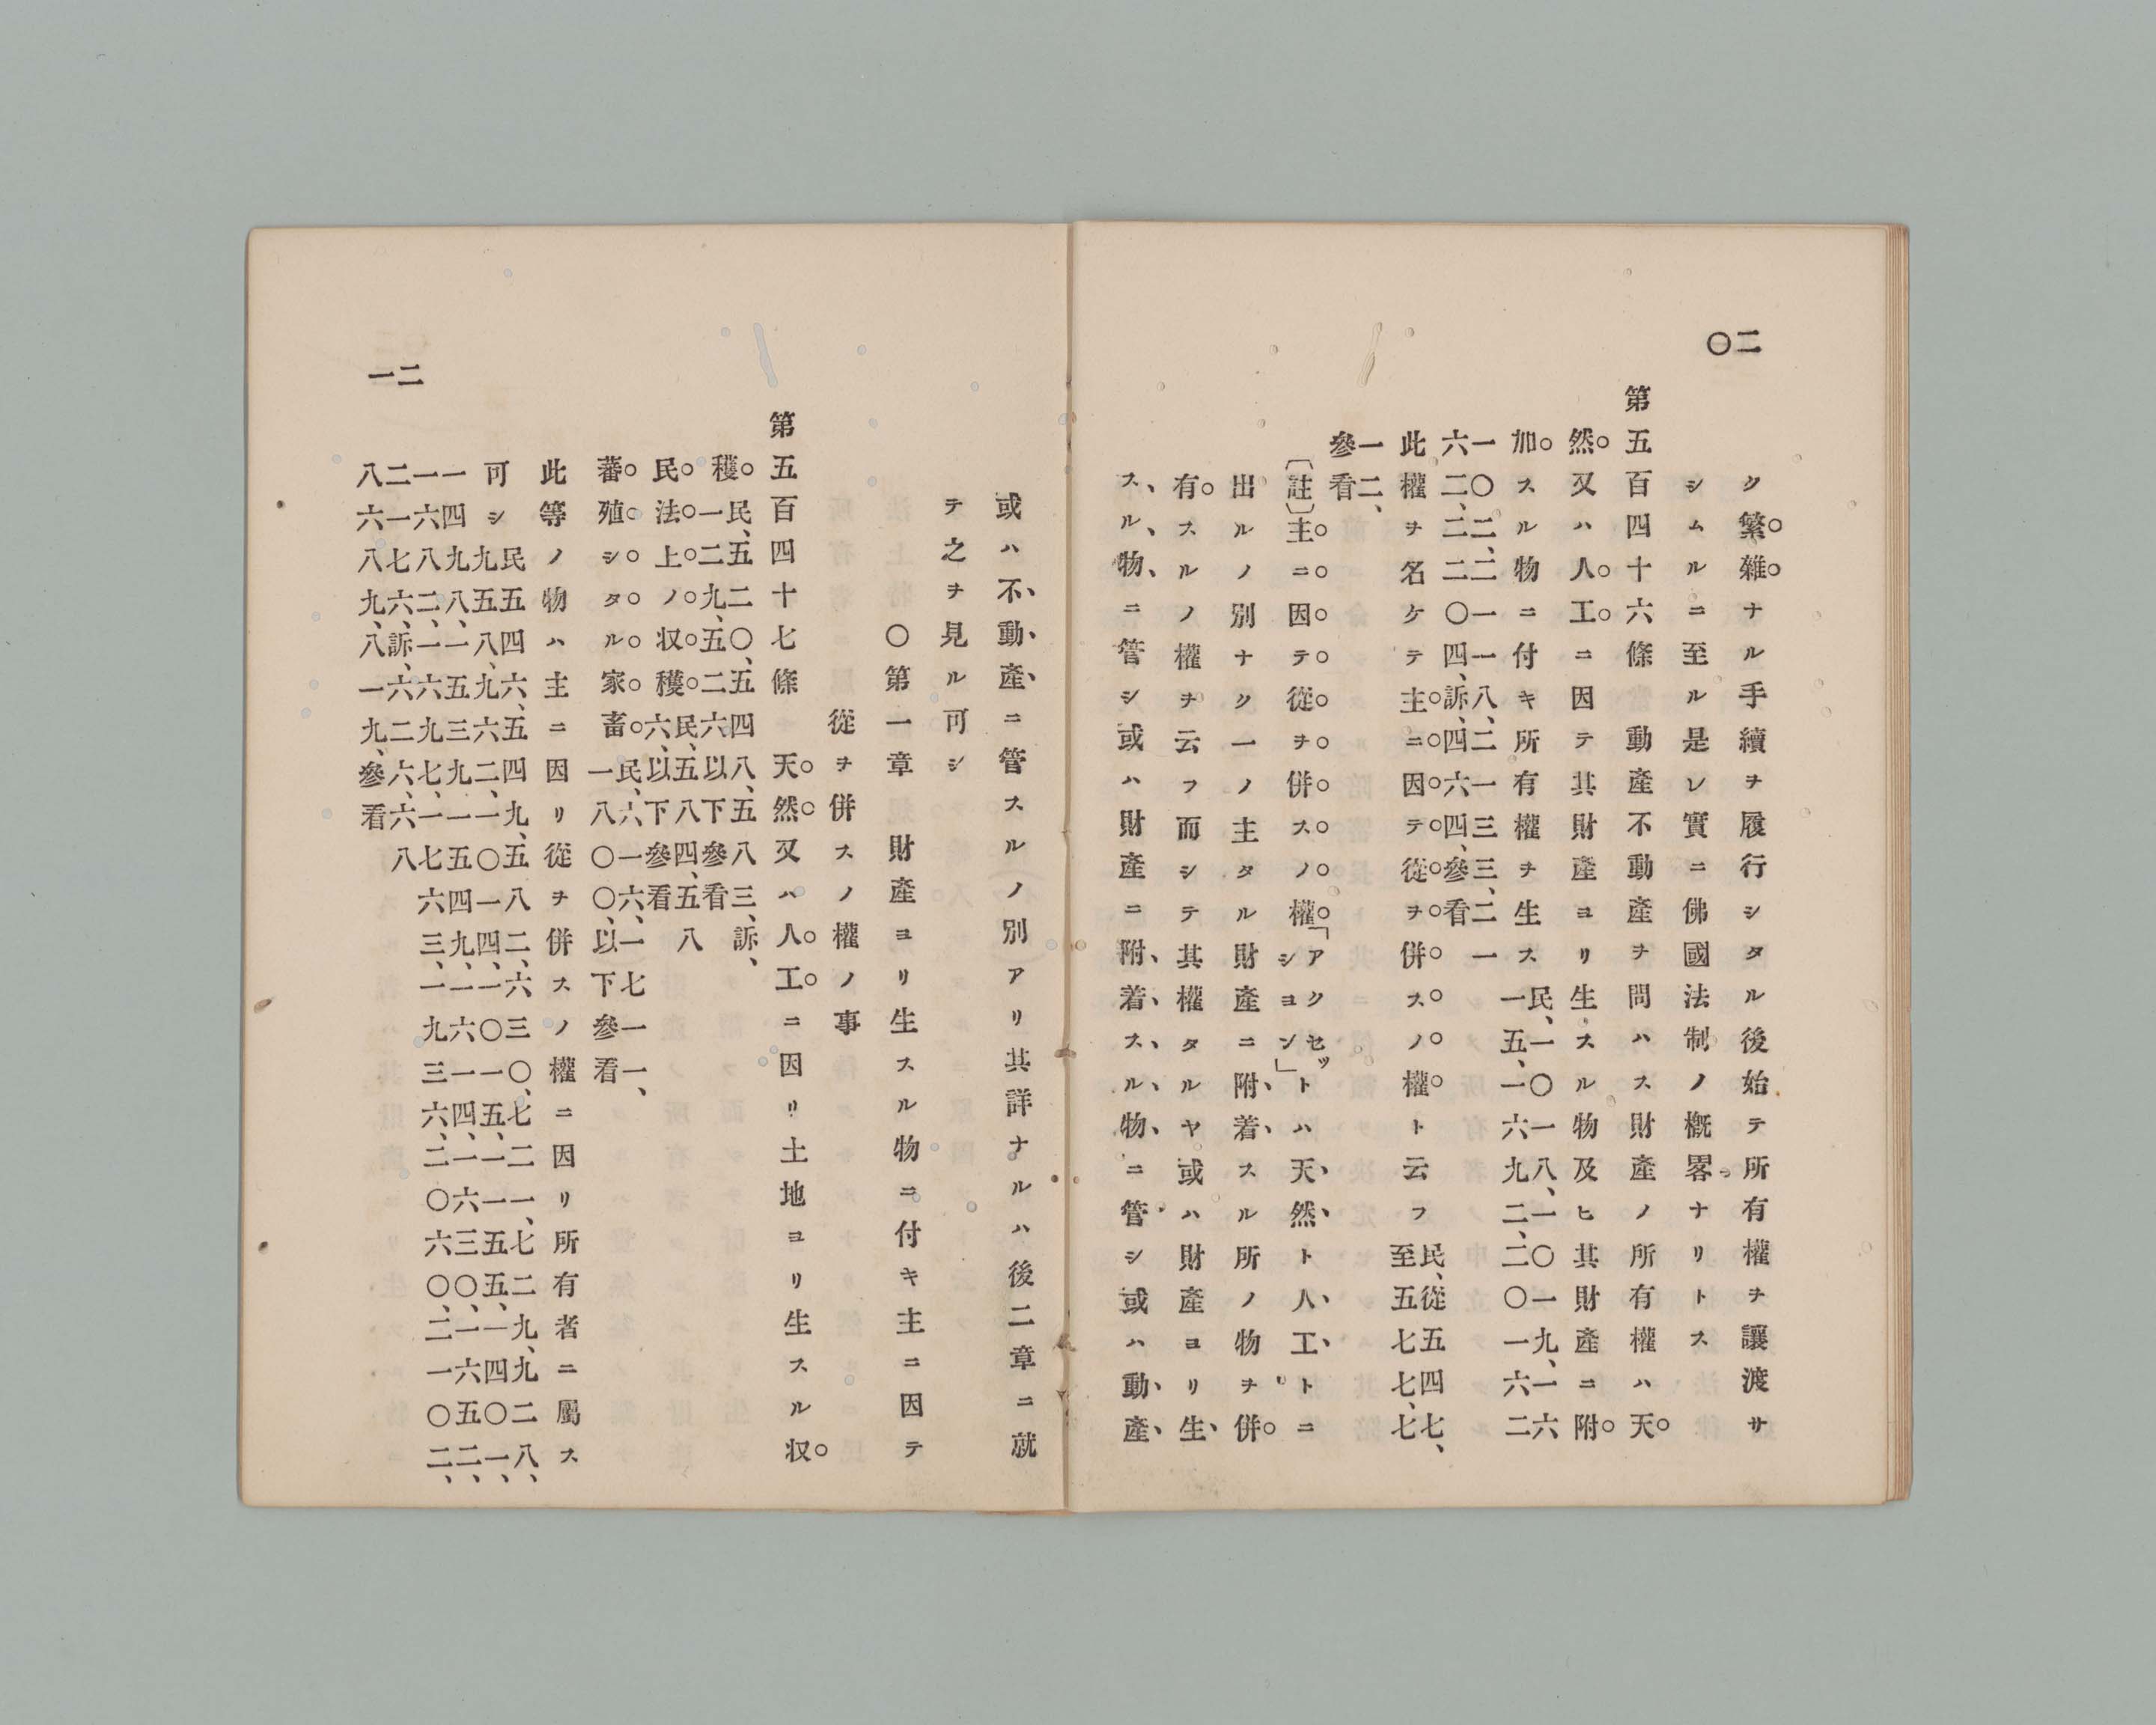 二〇
ク繁雜ナル手續ヲ履行シタル後始テ所有權ヲ讓渡サ
シムルニ至ル是レ實ニ佛國法制ノ概畧ナリトス
第五百四十六條 動產不動產ヲ問ハス財產ノ所有權ハ天
然又ハ人工ニ因テ其財產ヨリ生スル物及ヒ其財產ニ附
加スル物ニ付キ所有權ヲ生ス 民、一〇一八、一〇一九、一六
一五、一六九二、二〇一六二
一〇二、二一一八、二一三三、二一
六二、二二〇四、訴、四六四、參看
此權ヲ名ケテ主ニ因テ從ヲ併スノ權ト云フ 民、從五四七、
至五七七七
一二、
參看
〔註〕主ニ因テ從ヲ併スノ權「アクセッション」トハ天然ト人工トニ
出ルノ別ナク一ノ主タル財產ニ附着スル所ノ物ヲ併
有スルノ權ヲ云フ而シテ其權タルヤ或ハ財產ヨリ生
スル物ニ管シ或ハ財產ニ附着スル物ニ管シ或ハ動產
二一
或ハ不動產ニ管スルノ別アリ其詳ナルハ後二章ニ就
テ之ヲ見ル可シ
〇第一章 財產ヨリ生スル物ニ付キ主ニ因テ
從ヲ併スノ權ノ事
第五百四十七條 天然又ハ人工ニ因リ土地ヨリ生スル収
穫 民、五二〇、五四八、五八三、訴、
一二九、五二六以下參看
民法上ノ収穫 民、五八四、五八
六、以下參看
蕃殖シタル家畜 民、六一六、一七一一、
一八〇〇、以下參看
此等ノ物ハ主ニ因リ從ヲ併スノ權ニ因リ所有者ニ屬ス
可シ 民五四六、五四九、五八二、六三〇、七二一、七二九、九二八、
九五八、九六二、一〇一四、一〇一五、一一五五、一四〇一、
一四九八、一五三九、一五四九、一六一四、一六三〇、一六五二、
一六八二、一六九七、一七六三、一九三六、二〇六〇、二一〇二、
二一七六、訴、六二六、六八
八六八九、八一九、參看